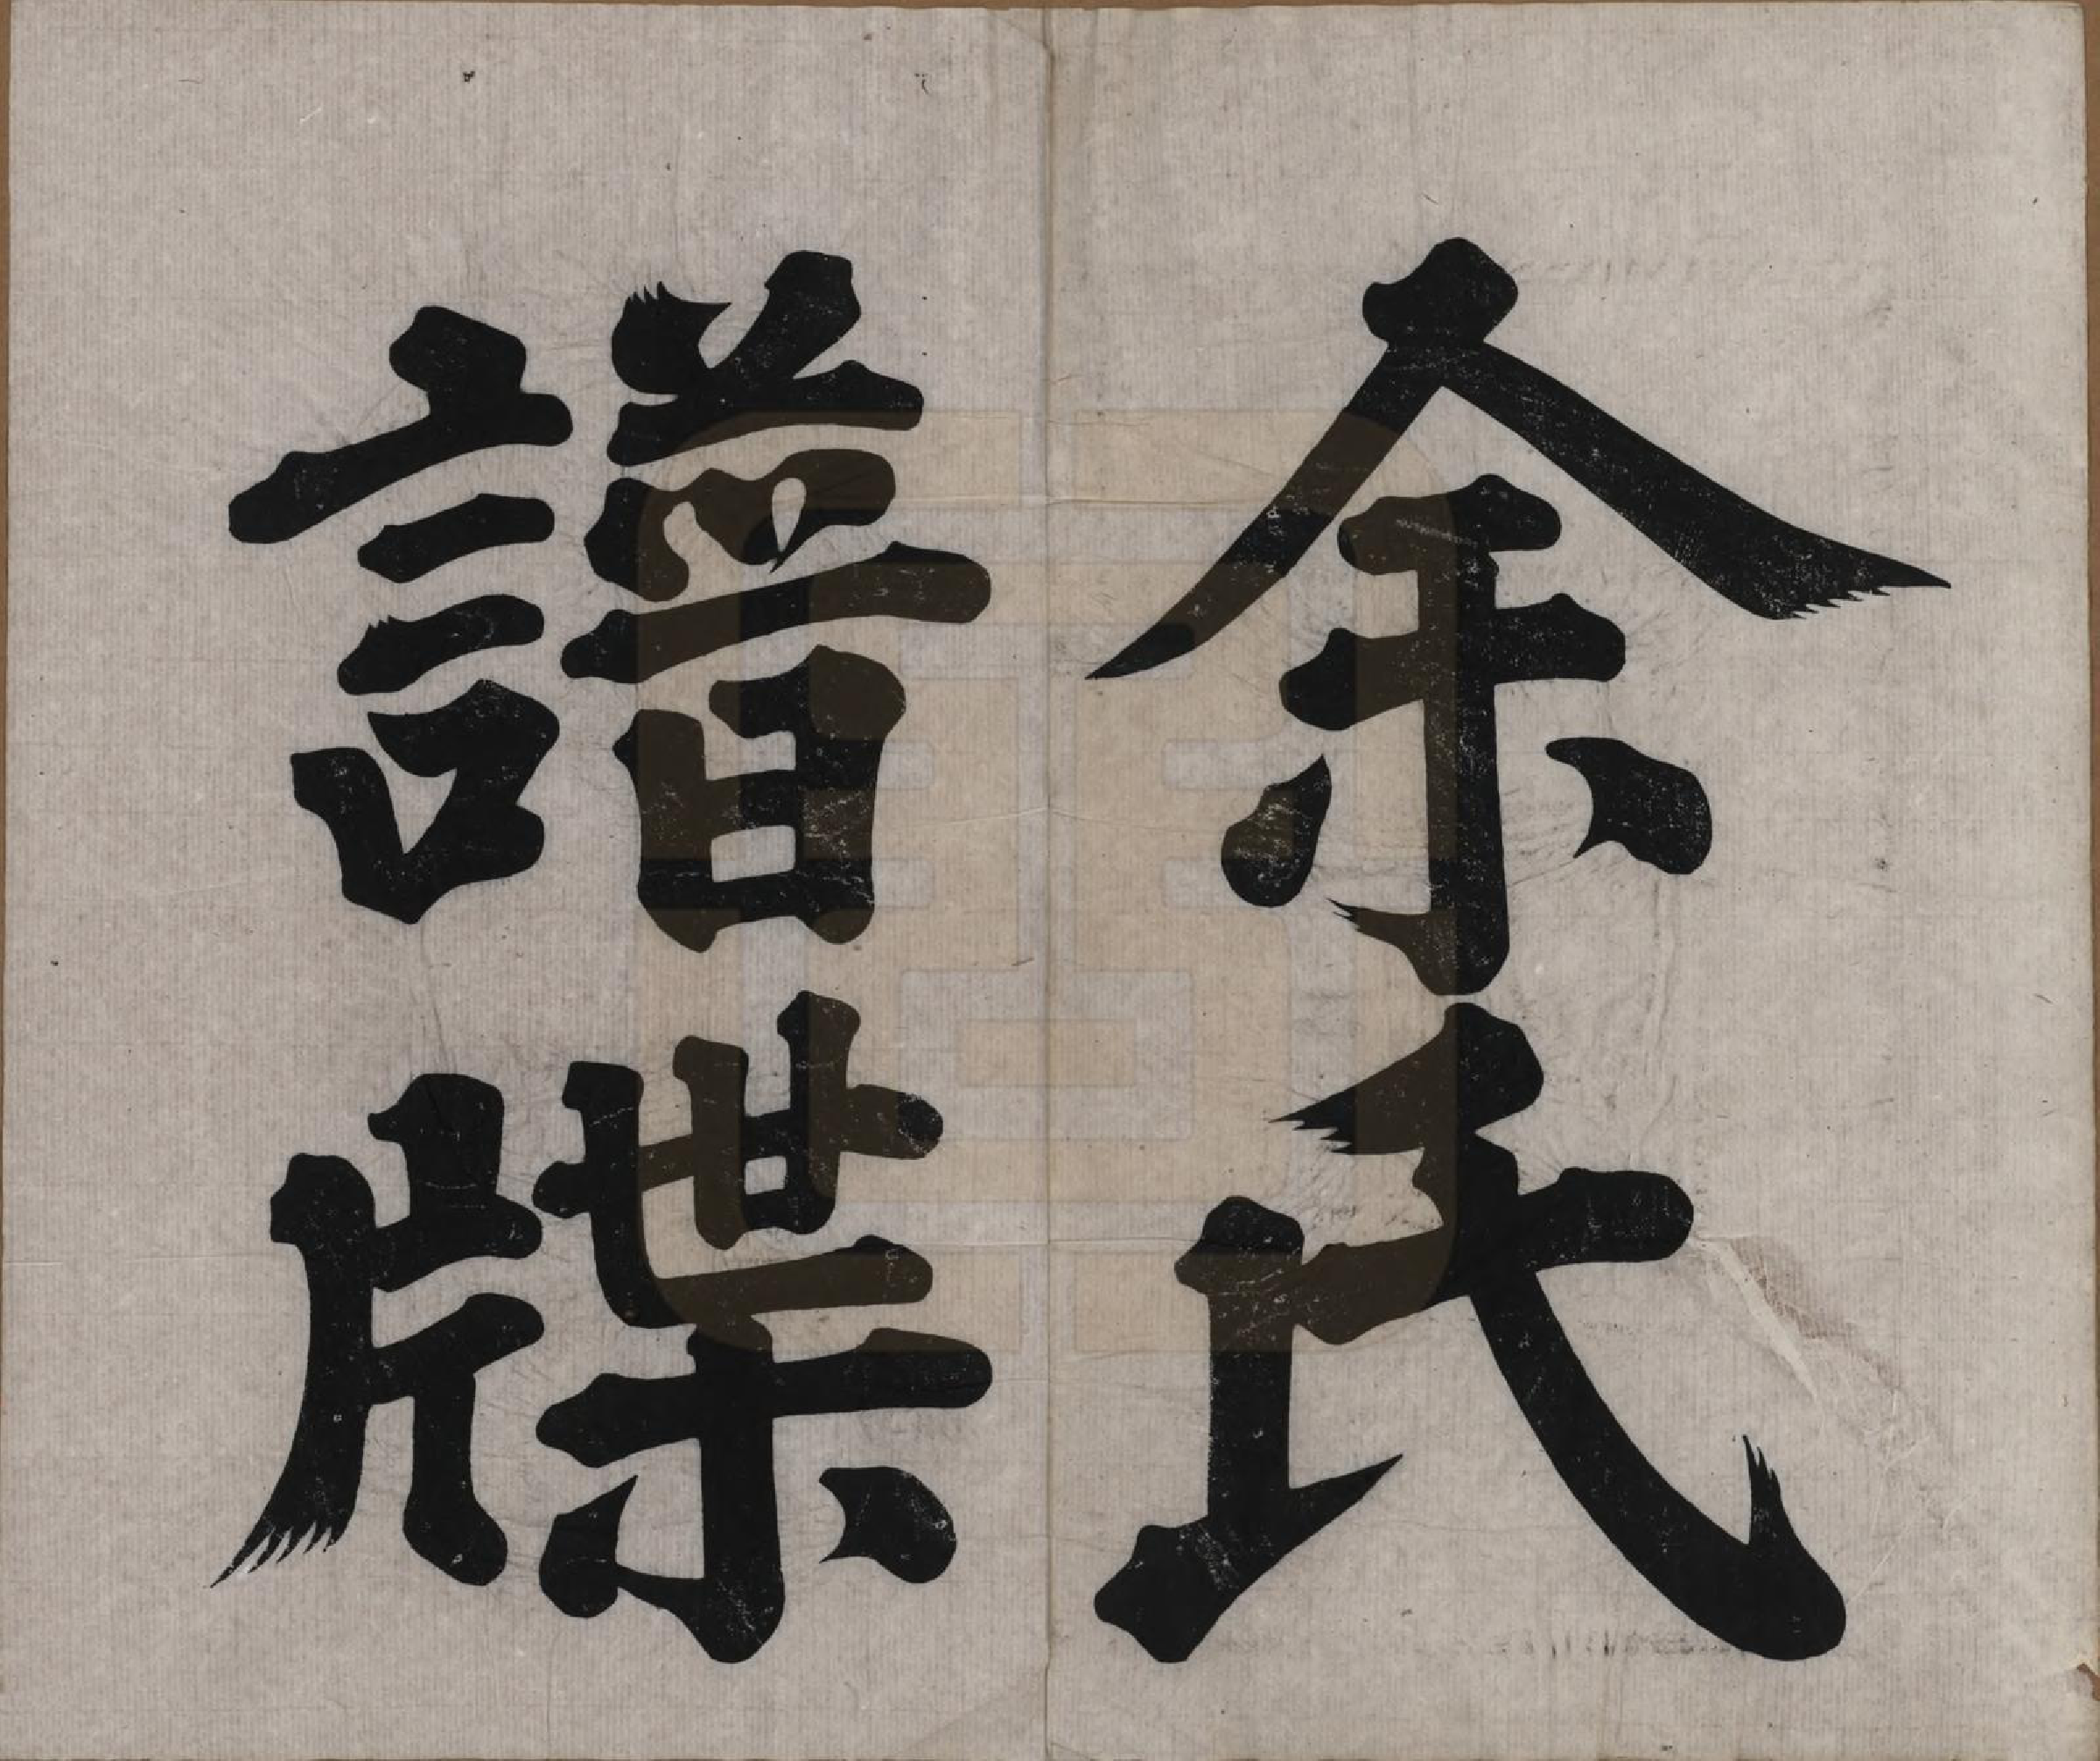 余氏
譜牒